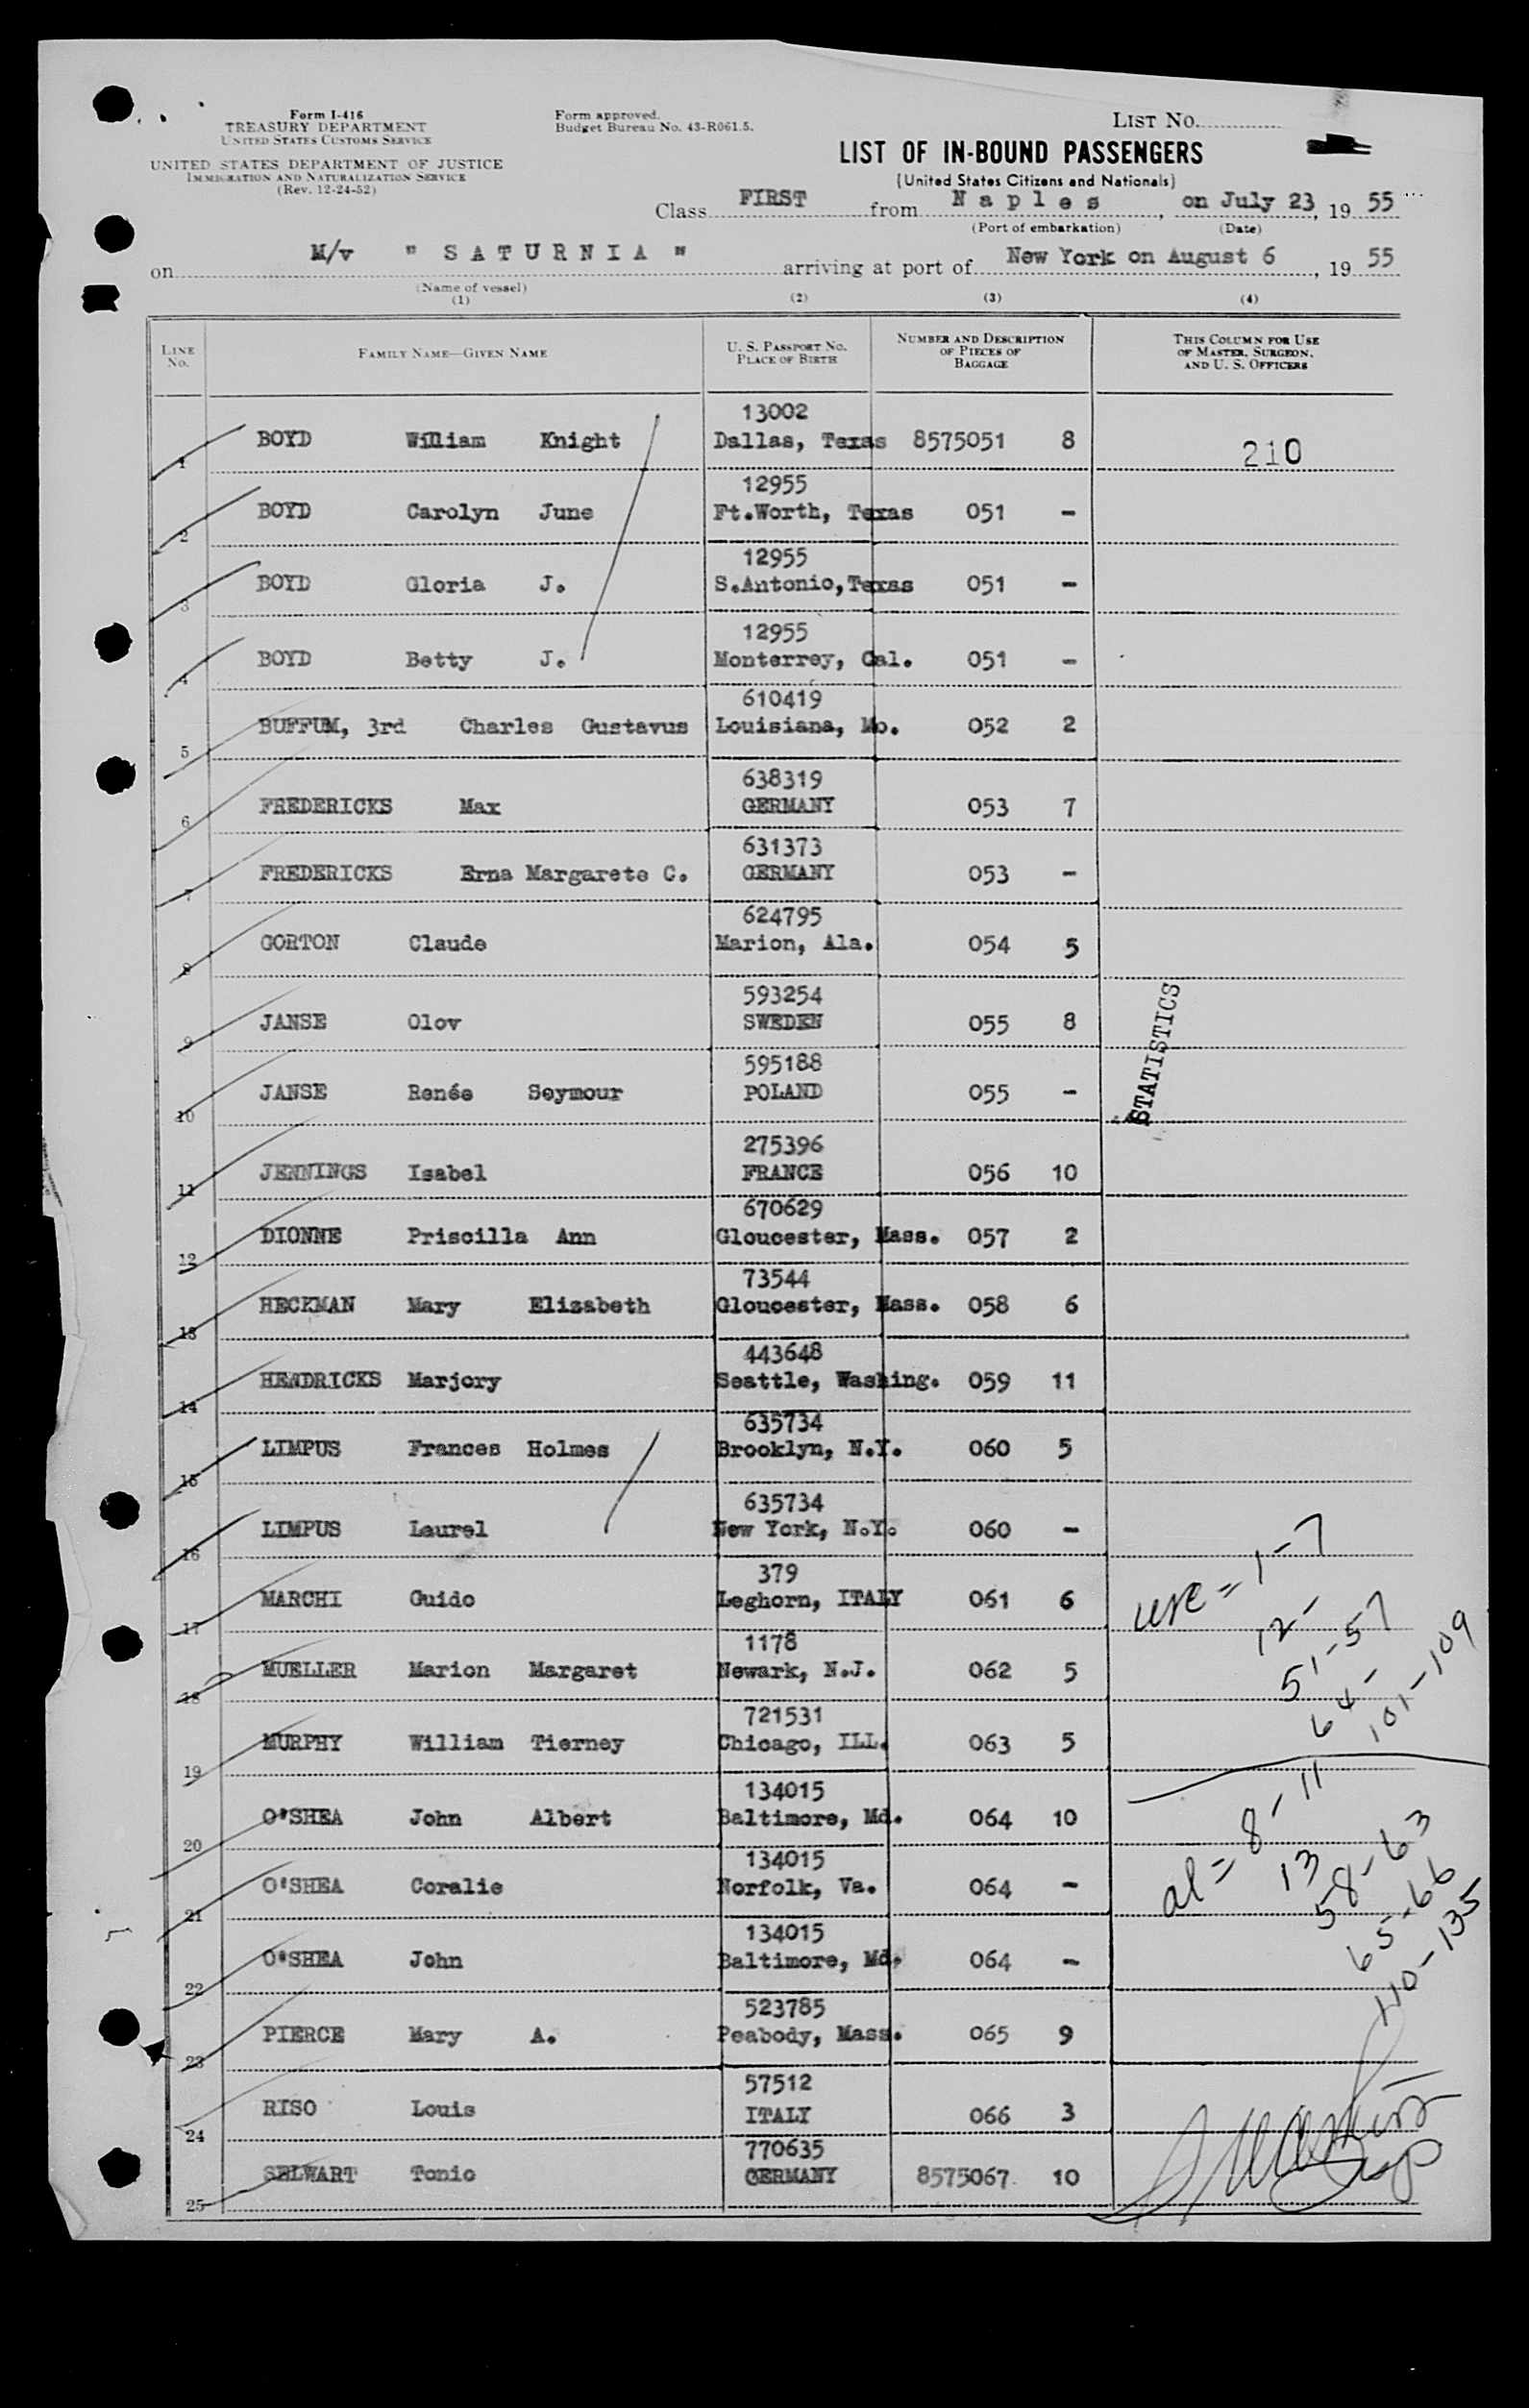 Form I-416
TREASURY DEPARTMENT
UNITED STATES CUSTOMS SERVICE
UNITED STATES DEPARTMENT OF JUSTICE
IMMIGRATION AND NATURALIZATION SERVICE
(Rev. 12-24-52)
Form approved.
Budget Bureau No. 43-R061.5.
LIST No.
LIST OF IN-BOUND PASSENGERS
(United States Citizens and Nationals)
Class FIRST from Naples, on July 23, 19 55
(Port of embarkation) (Date)
on M/v "SATURNIA" arriving at port of New York on August 6, 19 55
(Name of vessel)
(1) (2) (3) (4)
LINE No. FAMILY NAME—GIVEN NAME U. S. PASSPORT NO. PLACE OF BIRTH NUMBER AND DESCRIPTION OF PIECES OF BAGGAGE THIS COLUMN FOR USE OF MASTER, SURGEON, AND U. S. OFFICERS
13002
1 BOYD William Knight Dallas, Texas 8575051 8 210
12955
2 BOYD Carolyn June Ft.Worth, Texas 051 -
12955
3 BOYD Gloria J. S.Antonio,Texas 051 -
12955
4 BOYD Betty J. Monterrey, Cal. 051 -
610419
5 BUFFUM, 3rd Charles Gustavus Louisiana, Mo. 052 2
638319
6 FREDERICKS Max GERMANY 053 7
631373
7 FREDERICKS Erna Margarete C. GERMANY 053 -
624795
8 GORTON Claude Marion, Ala. 054 5
593254
9 JANSE Olov SWEDEN 055 8
STATISTICS
595188
10 JANSE Renée Seymour POLAND 055 -
275396
11 JENNINGS Isabel FRANCE 056 10
670629
12 DIONNE Priscilla Ann Gloucester, Mass. 057 2
73544
13 HECKMAN Mary Elizabeth Gloucester, Mass. 058 6
443648
14 HENDRICKS Marjory Seattle, Washing. 059 11
635734
15 LIMPUS Frances Holmes Brooklyn, N.Y. 060 5
635734
16 LIMPUS Laurel New York, N.Y. 060 -
379
17 MARCHI Guido Leghorn, ITALY 061 6
1178
18 MUELLER Marion Margaret Newark, N.J. 062 5
721531
19 MURPHY William Tierney Chicago, ILL. 063 5
134015
20 O'SHEA John Albert Baltimore, Md. 064 10
134015
21 O'SHEA Coralie Norfolk, Va. 064 -
134015
22 O'SHEA John Baltimore, Md. 064 -
523785
23 PIERCE Mary A. Peabody, Mass. 065 9
57512
24 RISO Louis ITALY 066 3
770635
25 SELWART Tonio GERMANY 8575067 10
= 1-7
12-
51-57
64-
101-109
al = 8-11
13
58-63
65-66
110-135